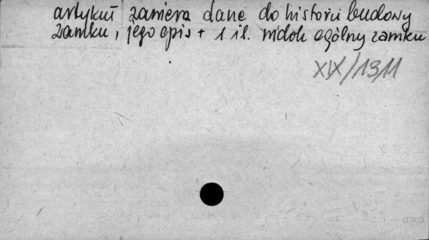 artykuł zawiera dane do historii budowy
zamku, jego opis + 1 il. widok ogólny zamku
XIX/1311